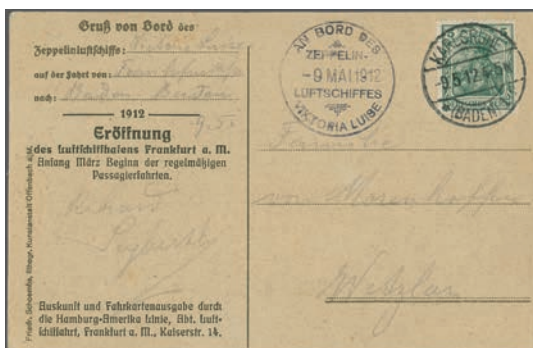 Gruß von Bord des
Zeppelinluftschiffes: Viktoria Luise
auf der Fahrt von: Frankfurt
nach: Baden Baden
1912
9.5.
Eröffnung
des Luftschiffhafens Frankfurt a. M.
Anfang März Beginn der regelmäßigen
Passagierfahrten.
Auskunft und Fahrkartenausgabe durch
die Hamburg-Amerika Linie, Abt. Luft-
schiffahrt, Frankfurt a. M., Kaiserstr. 14.
Friedr. Schoembs, lithogr. Kunstanstalt Offenbach a/M.
AN BORD DES
ZEPPELIN-
-9 MAI 1912
LUFTSCHIFFES
VIKTORIA LUISE
KARLSRUHE
9.5.12
(BADEN)
Familie
von
Wetzlar